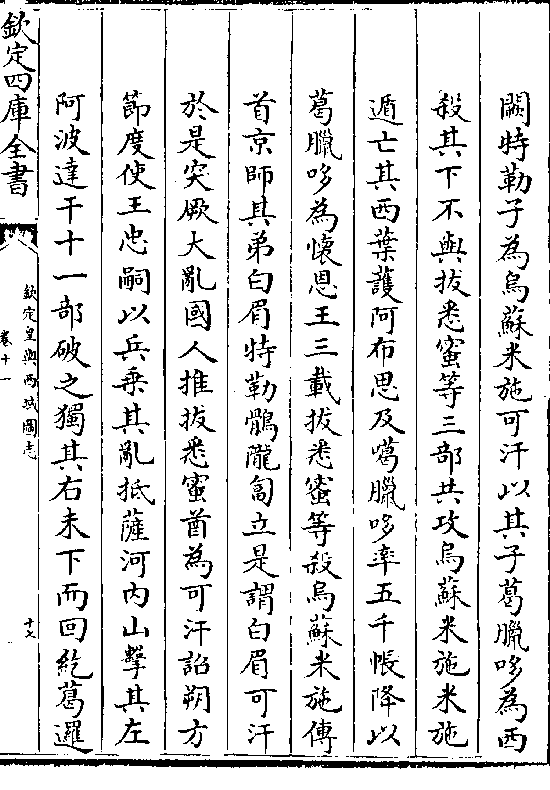 闕特勒子為烏蘇米施可汗以其子葛臘哆為西
殺其下不與拔悉蜜等三部共攻烏蘇米施米施
遁亡其西葉護阿布思及噶臘哆率五千帳降以
葛臘哆為懷恩王三載拔悉蜜等殺烏蘇米施傳
首京師其弟白眉特勒鶻隴匐立是謂白眉可汗
於是突厥大亂國人推拔悉蜜酋為可汗詔朔方
節度使王忠嗣以兵乗其亂抵薩河内山擊其左
阿波達干十一部破之獨其右未下而回紇葛邏
欽定四庫全書
欽定皇輿西域圖志
卷十一